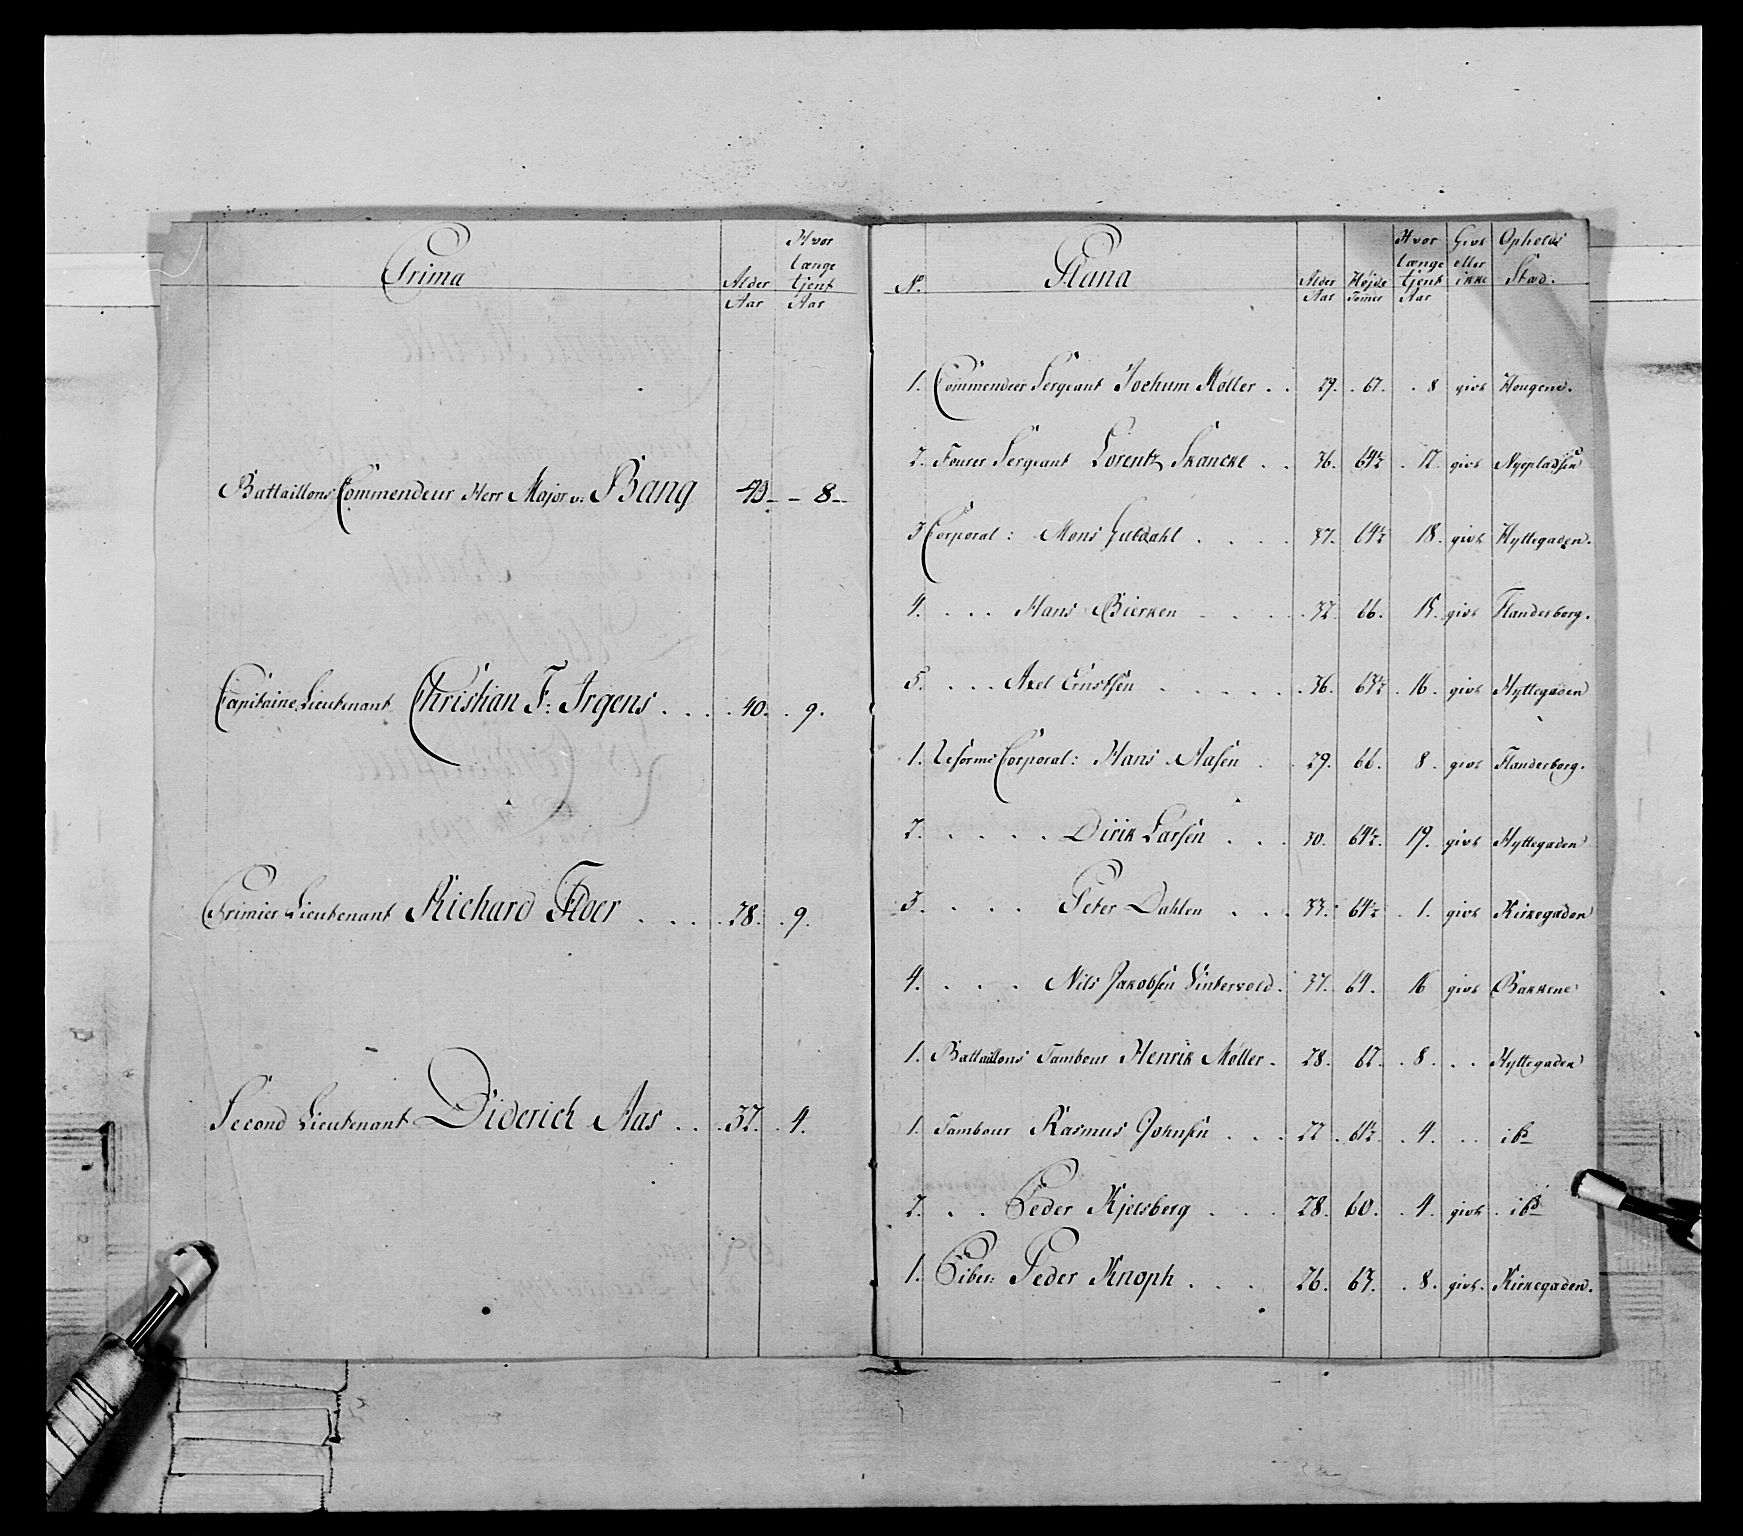 Prima
Alder Aar
Hvor længe tjent Aar
Battaillons Commendeur Herr Major v: Bang 49 - 8 -
Capitaine Lieutenant Christian F: Irgens . . . 40. . 9.
Primier Lieutenant Richard Floer . . . 28. . 9.
Second Lieutenant Diderich Aas . . . 32. . 4.
Plana
No.
Alder Aar
Højde Tomer
Hvor længe tjent Aar
Givt eller ikke
Opholds Stæd.
1. Commendeer Sergeant Jochum Møller . . 29. . 67. . 8 givt Hougene.
2. Fourer Sergeant Lorentz Skancke . . 36. 64½ . 12. givt Nyepladsen
3 Corporal: Mons Guldahl . . . . 37. 64½ 18. givt Hyttegaden.
4. . . . Hans Bierken . . . . 32. 66. 15. givt Flanderborg.
5. . . . Axel Ernstsen . . . . . 36. 63½ . 16. givt Hyttegaden
1. Reforme Corporal: Hans Aasen . . 29. 66. 8. givt Flanderborg.
2. . . . . Dirik Larsen . . . 30. 64½. 19. givt Hyttegaden
3. . . . Peter Dahlen . . . 33. 64½ . 1. givt Kirkegaden
4. . . . Nils Jakobsen Vintervold. 37. 64. 16 givt Bakkene
1. Battaillons Tambour Henrik Møller. 28. 62. . 8. . . Hyttegaden
1. Tambour Rasmus Johnsen . . . 22 . 61½. . 4. . . ibd
2. . . Peder Kjelsberg . . . 28. 60. . 4. givt . ibd
1. Piber: Peder Knoph . . . . 26. 63. . 8. givt. Kirkegaden.